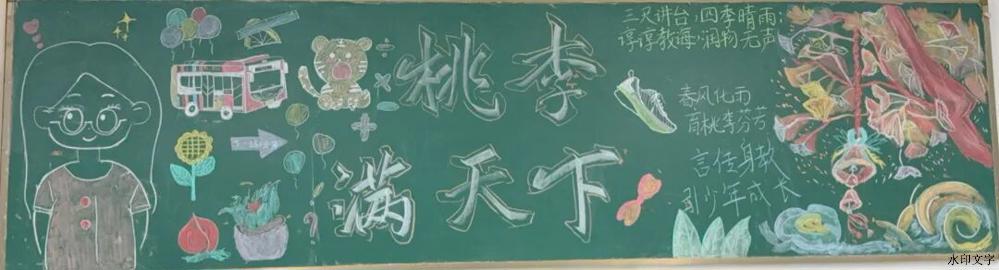 三尺讲台，四季晴雨；
谆谆教诲，润物无声
桃李
满天下
春风化雨
育桃李芬芳
言传身教
引少年成长
水印文字